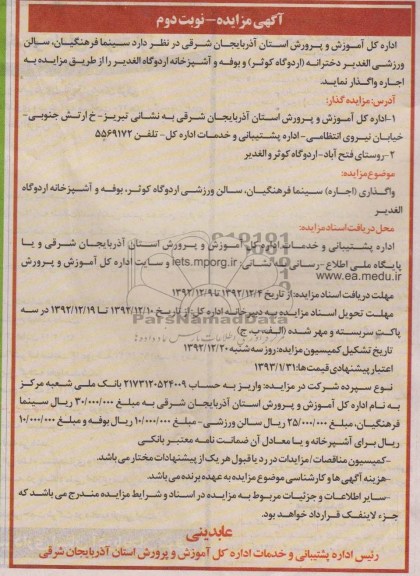 آگهی مزایده - نوبت دوم
اداره کل آموزش و پرورش استان آذربایجان شرقی در نظر دارد سینما فرهنگیان، سالن
ورزشی الغدیر دخترانه (اردوگاه کوثر) و بوفه و آشپزخانه اردوگاه الغدیر را از طریق مزایده به
اجاره واگذار نماید.
آدرس: مزایده گذار:
۱-اداره کل آموزش و پرورش استان آذربایجان شرقی به نشانی تبریز- خ ارتش جنوبی-
خیابان نیروی انتظامی- اداره پشتیبانی و خدمات اداره کل- تلفن ۵۵۶۹۱۷۲
۲-روستای فتح آباد-اردوگاه کوثر و الغدیر
موضوع مزایده:
واگذاری (اجاره) سینما فرهنگیان، سالن ورزشی اردوگاه کوثر، بوفه و آشپزخانه اردوگاه
الغدیر
محل دریافت اسناد مزایده:
اداره پشتیبانی و خدمات اداره کل آموزش و پرورش استان آذربایجان شرقی و یا
پایگاه ملی اطلاع-رسانی به نشانی: iets.mporg.ir و سایت اداره کل آموزش و پرورش
www.ea.medu.ir
مهلت دریافت اسناد مزایده: از تاریخ ۱۳۹۲/۱۲/۴ تا ۱۳۹۲/۱۲/۹
مهلت تحویل اسناد مزایده به دبیرخانه اداره کل: از تاریخ ۱۳۹۲/۱۲/۱۰ تا ۱۳۹۲/۱۲/۱۹ در سه
پاکت سربسته و مهر شده (الف، ب، ج)
تاریخ تشکیل کمیسیون مزایده: روز سه شنبه ۱۳۹۲/۱۲/۲۰
اعتبار پیشنهادی قیمت‌ها: ۱۳۹۳/۱/۳۱
نوع سپرده شرکت در مزایده: واریز به حساب ۲۱۷۳۱۲۰۵۲۴۰۰۹ بانک ملی شعبه مرکز
به نام اداره کل آموزش و پرورش استان آذربایجان شرقی به مبلغ ۳۰/۰۰۰/۰۰۰ ریال سینما
فرهنگیان، مبلغ ۲۵/۰۰۰/۰۰۰ ریال سالن ورزشی- مبلغ ۱۰/۰۰۰/۰۰۰ ریال بوفه و مبلغ ۱۰/۰۰۰/۰۰۰
ریال برای آشپزخانه و یا معادل آن ضمانت نامه معتبر بانکی
-کمیسیون مناقصات/مزایدات در رد یا قبول هر یک از پیشنهادات مختار می باشد.
-هزینه آگهی ها و کارشناسی موضوع مزایده به عهده برنده می باشد.
-سایر اطلاعات و جزئیات مربوط به مزایده در اسناد و شرایط مزایده مندرج می باشد که
جزء لاینفک قرارداد خواهد بود.
عابدینی
رئیس اداره پشتیبانی و خدمات اداره کل آموزش و پرورش استان آذربایجان شرقی
ParsNamadData